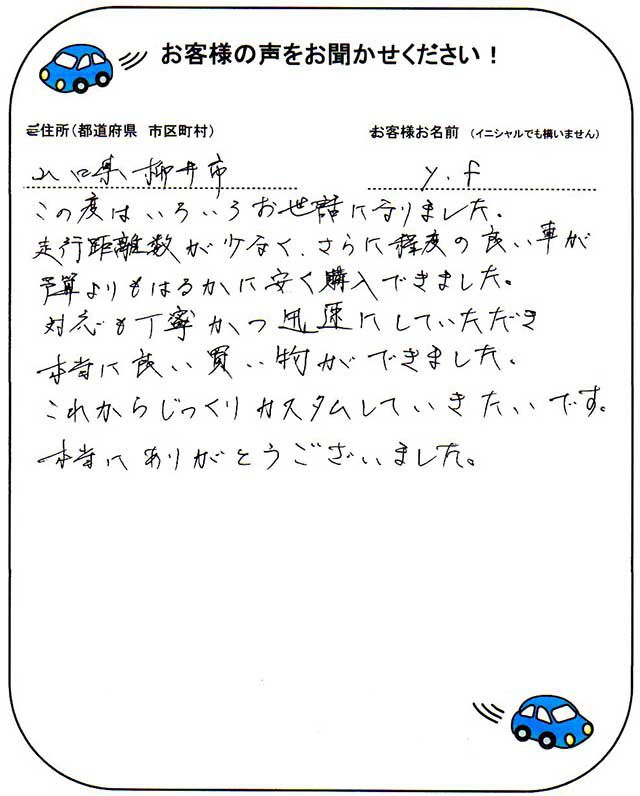 お客様の声をお聞かせください！
ご住所（都道府県　市区町村）
お客様お名前　（イニシャルでも構いません）
山口県柳井市
y.f
この度はいろいろお世話になりました。
走行距離数が少なく、さらに程度の良い車が
予算よりもはるかに安く購入できました。
対応も丁寧かつ迅速にしていただき
本当に良い買い物ができました。
これからじっくりカスタムしていきたいです。
本当にありがとうございました。